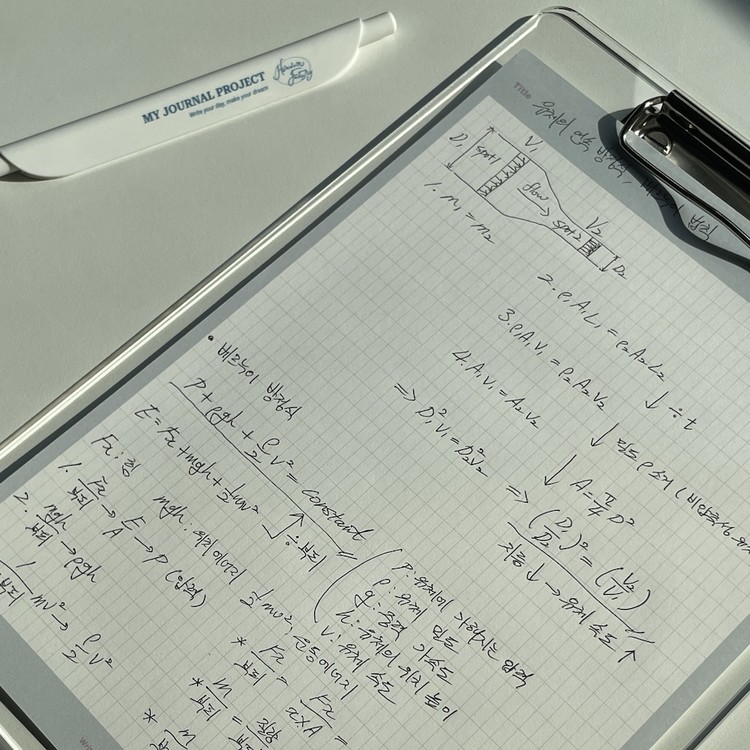 MY JOURNAL PROJECT
Write your day, make your dream
Title 유체의 연속 방정식,
D₁ spot1 V₁ flow → spot2 V₂ D₂
1. m₁ = m₂
2. ρ₁A₁L₁ = ρ₂A₂L₂
↓ ÷t
3. ρ₁A₁V₁ = ρ₂A₂V₂
↓ 밀도 ρ 소거 (비압축성
4. A₁V₁ = A₂V₂
↓ A = π/4 D²
⇒ D₁²V₁ = D₂²V₂ ⇒ (D₁/D₂)² = (V₂/V₁)
지름 ↓ → 유체 속도 ↑
• 베르누이 방정식
P + ρgh + ρ/2 V² = Constant
↑ ÷부피
E = Fx + mgh + ½mv²
(P: 유체에 가해지는 압력
ρ: 유체 밀도
g: 중력 가속도
h: 유체의 위치 높이
V: 유체 속도
Fx: 일 mgh: 위치에너지 ½mv²: 운동에너지
1. Fx/부피 → F/A → P (압력)
2. mgh/부피 → ρgh
1/부피 mv² → ρ/2 V²
* Fx/부피 = Fx/x×A =
* m/부피 = 질량/부피
* m/부피